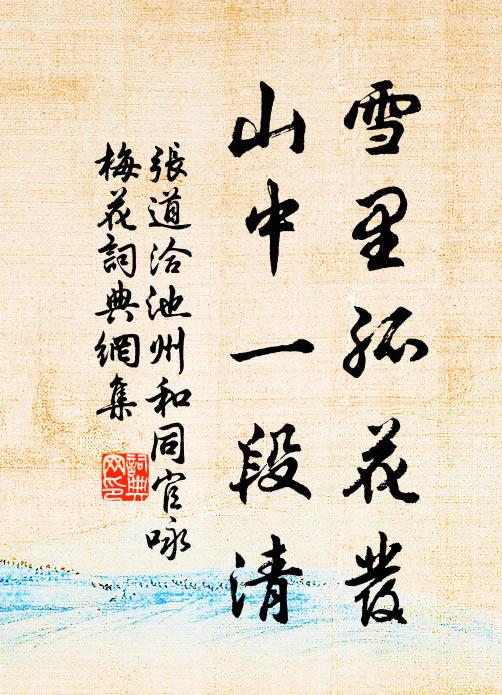 雪里孤花發
山中一段清
張道洽池州和同官咏
梅花詞典網集
詞典
网印